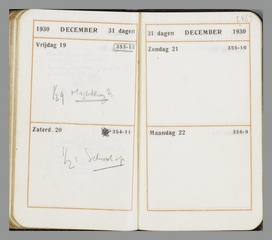 1930 DECEMBER 31 dagen
Vrijdag 19 353-12
½9
Zaterd. 20 354-11
½2
31 dagen DECEMBER 1930
Zondag 21 355-10
Maandag 22 356-9